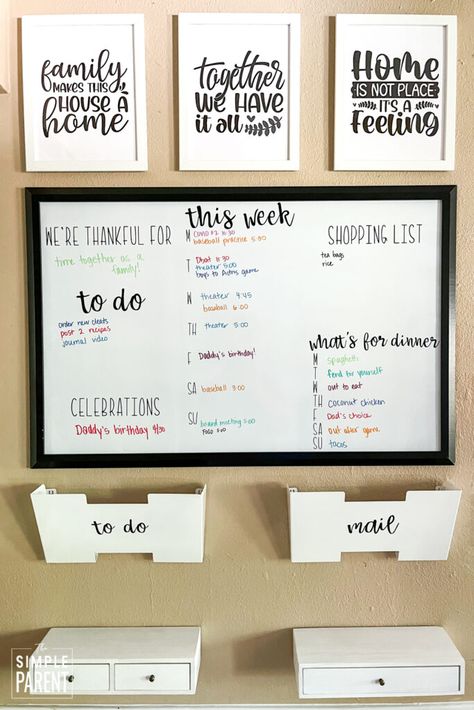 family
MAKES THIS
HOUSE A
home
together
WE HAVE
it all
HOME
IS NOT PLACE
IT'S A
Feeling
WE'RE THANKFUL FOR
time together as a
family!
to do
order new cleats
post 2 recipes
journal video
CELEBRATIONS
Daddy's birthday 4/30
this week
M Covid #2 11:30
baseball practice 5:30
T
theater 5:00
boys to Astros game
W theater 4:45
baseball 6:00
TH theater 5:00
F Daddy's birthday!
SA baseball 3:00
SU board meeting 5:00
SHOPPING LIST
tea bags
rice
what's for dinner
M spaghetti
T fend for yourself
W out to eat
TH coconut chicken
F Dad's choice
SA out after game
SU tacos
to do
mail
THE
SIMPLE
PARENT